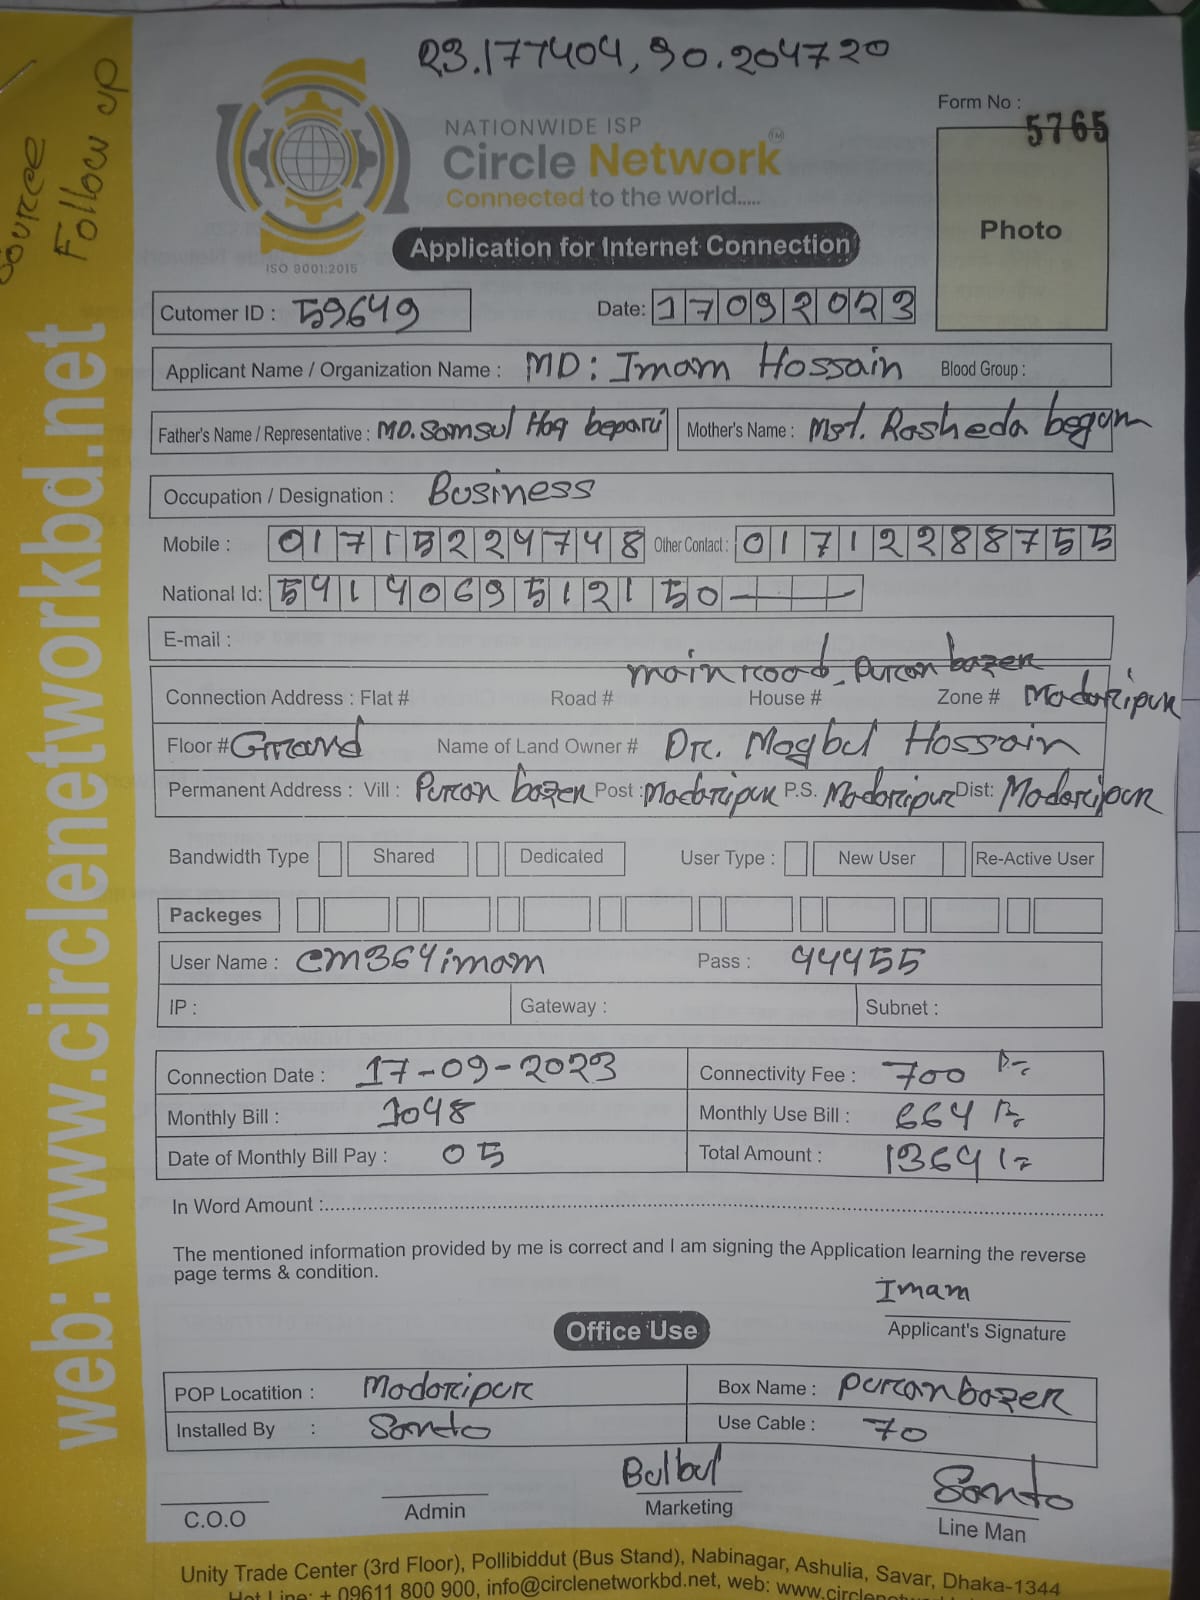 23.177404, 90.204720
Source
Follow up
web: www.circlenetworkbd.net
Form No :
5765
NATIONWIDE ISP
Circle Network TM
Connected to the world.....
ISO 9001:2015
Photo
Application for Internet Connection
Cutomer ID : 59649 Date: 17092023
Applicant Name / Organization Name : MD: Imam Hossain Blood Group :
Father's Name / Representative : MD. Samsul Haq bepari Mother's Name : Mst. Rasheda begam
Occupation / Designation : Business
Mobile : 01715224748 Other Contact : 01712288755
National Id: 5414069512150
E-mail :
main road, Puran bazer
Connection Address : Flat # Road # House # Zone # Madaripur
Floor # Grrand Name of Land Owner # Dr. Magbul Hossain
Permanent Address : Vill : Puran bazer Post : Madaripur P.S. Madaripur Dist: Madaripur
Bandwidth Type Shared Dedicated User Type : New User Re-Active User
Packeges
User Name : cm364imam Pass : 44455
IP : Gateway : Subnet :
Connection Date : 17-09-2023 Connectivity Fee : 700
Monthly Bill : 1048 Monthly Use Bill : 664
Date of Monthly Bill Pay : 05 Total Amount : 1364
In Word Amount :
The mentioned information provided by me is correct and I am signing the Application learning the reverse
page terms & condition.
Imam
Applicant's Signature
Office Use
POP Locatition : Madaripur Box Name : puranbazer
Installed By : Santo Use Cable : 70
Bulbul Santo
C.O.O Admin Marketing Line Man
Unity Trade Center (3rd Floor), Pollibiddut (Bus Stand), Nabinagar, Ashulia, Savar, Dhaka-1344
Hot Line: + 09611 800 900, info@circlenetworkbd.net, web: www.circlene